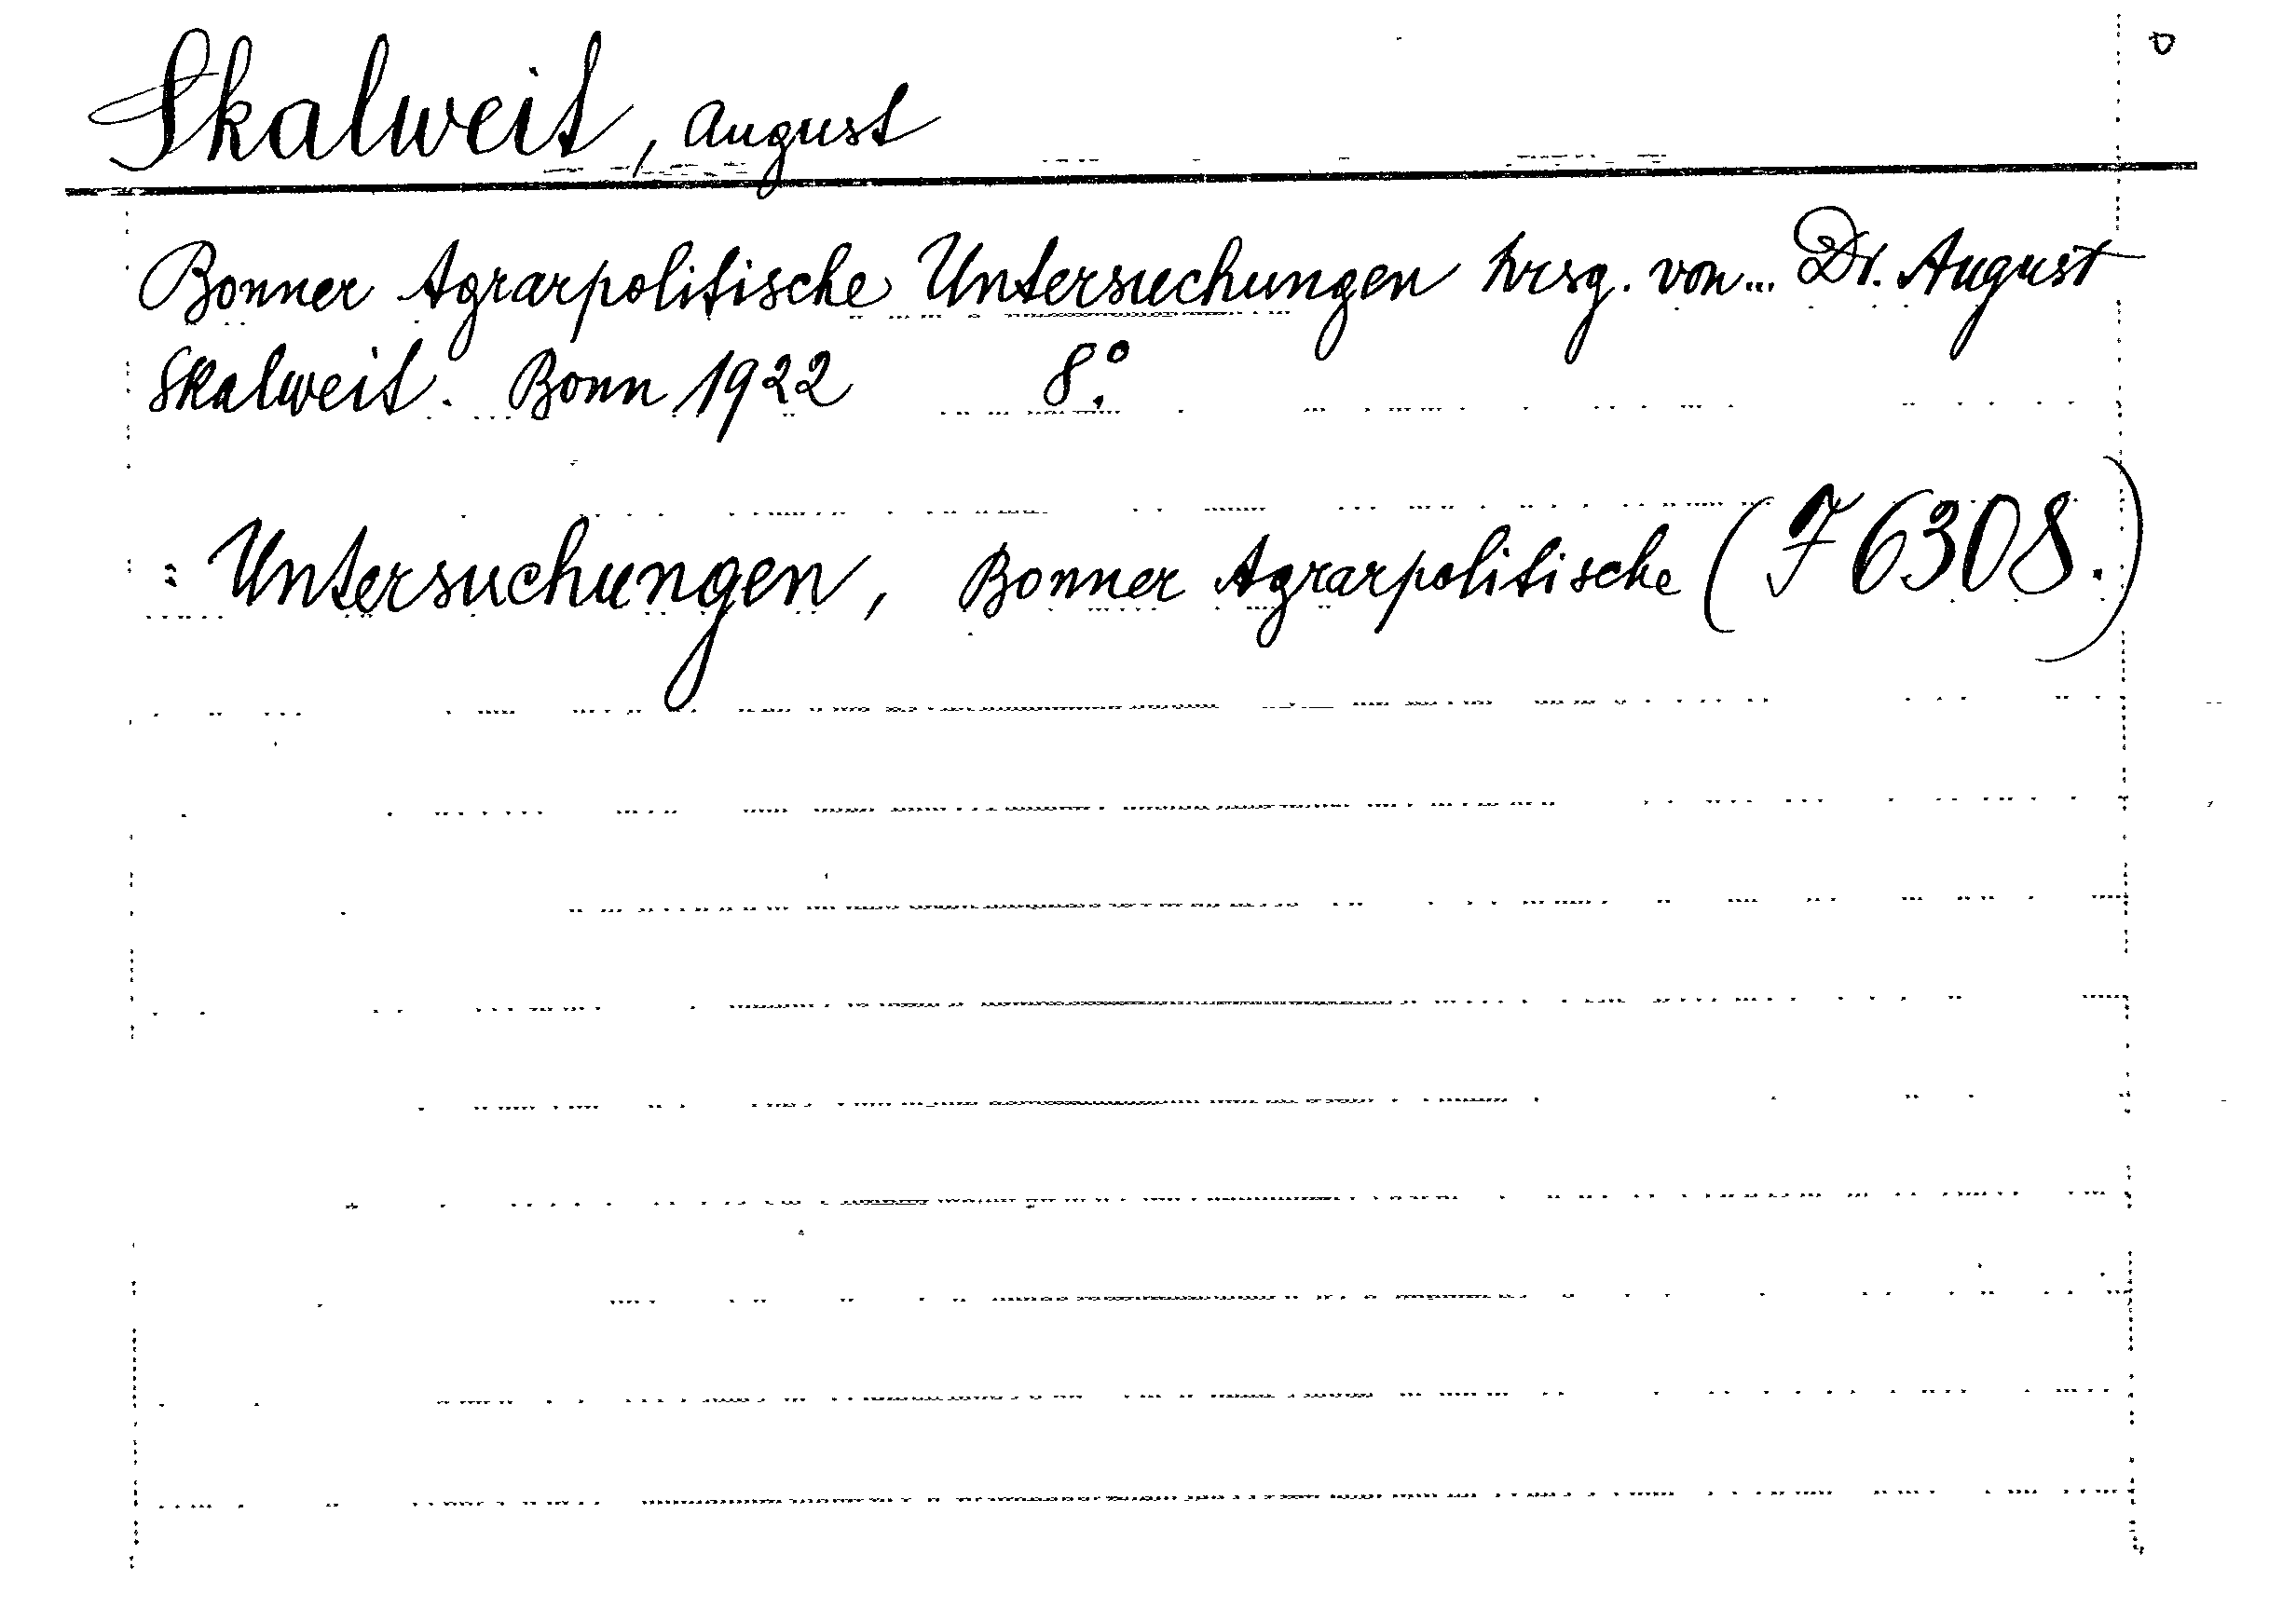 Skalweit, August
Bonner Agrarpolitische Untersuchungen hrsg. von... Dr. August
Skalweit. Bonn 1922 8°.
: Untersuchungen, Bonner Agrarpolitische (F 6308.)